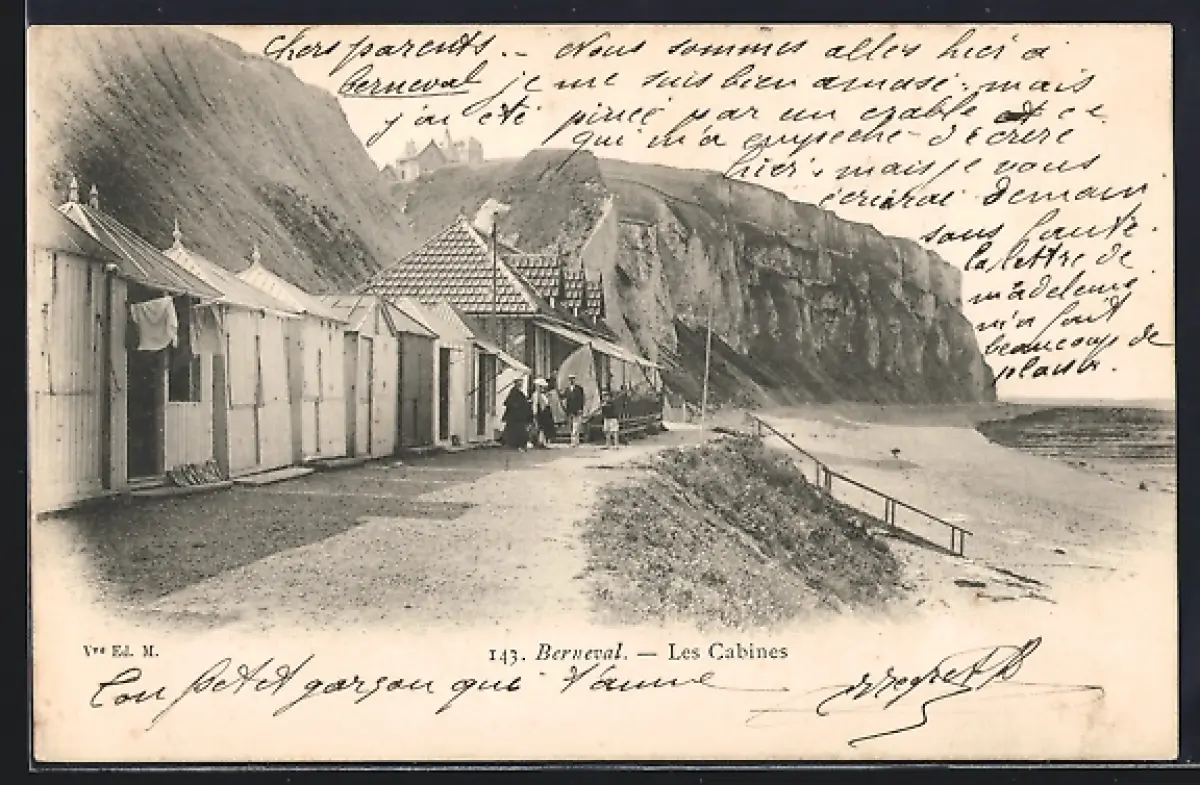 Chers parents. – Nous sommes allés hier à
Berneval je me suis bien amusé. mais
j'ai été pincé par un crable et ce
qui m'a empeché d'écrire
hier. mais je vous
écrirai demain
sans faute.
la lettre de
madeleine
m'a fait
beaucoup de
plaisir.
Vve Ed. M.
143. Berneval. — Les Cabines
ton petit garçon qui t'aime